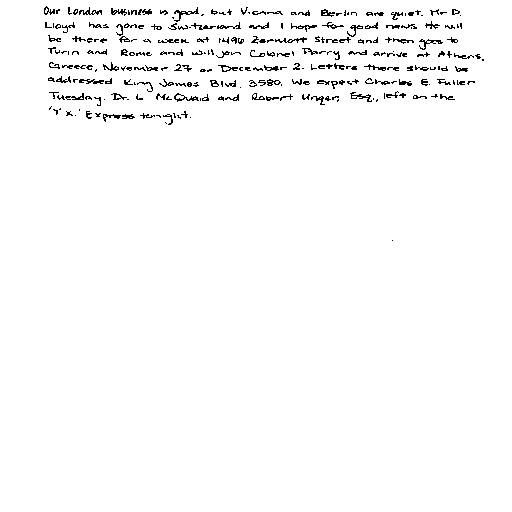 Our London business is good, but Vienna and Berlin are quiet. Mr D.
Lloyd has gone to Switzerland and I hope for good news. He will
be there for a week at 1496 Zermott Street and then goes to
Turin and Rome and will join Colonel Parry and arrive at Athens,
Greece, November 27 or December 2. Letters there should be
addressed King James Blvd. 3580. We expect Charles E. Fuller
Tuesday. Dr. L McQuaid and Robert Unger, Esq., left on the
'Y X.' Express tonight.